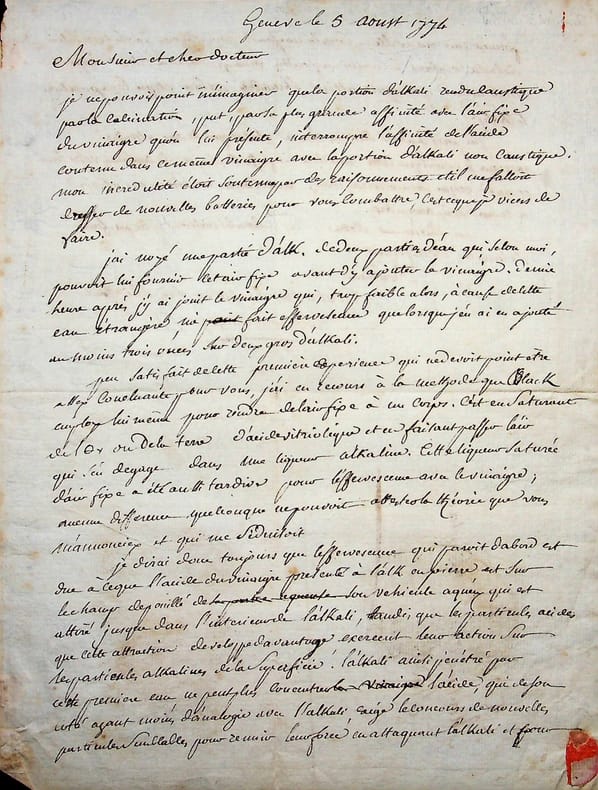 Geneve le 5 aoust 1774
Monsieur et cher docteur
je ne pouvois point m'imaginer que la portion d'alkali rendu caustique
par la calcination, put, par sa plus grande affinité avec l'air fixe
du vinaigre qu'on lui présente, interrompre l'affinité de l'acide
contenu dans ce meme vinaigre avec la portion d'alkali non caustique.
mon incredulité étoit soutenu par des raisonnements et il me falloit
dresser de nouvelles batteries pour vous combattre, c'est ce que je viens de
faire.
j'ai noyé une partie d'alk. de deux parties d'eau qui selon moi,
pouvoit lui fournir cet air fixe avant d'y ajouter le vinaigre. demie
heure après j'y ai joint le vinaigre qui, trop faible alors, à cause de cette
eau étrangère n'a point fait effervescence que lorsque j'en ai en ajouté
au moins trois onces sur deux gros d'alkali.
peu satisfait de cette première experience qui ne devoit point être
assez concluante pour vous, j'ai eu recours à la methode que Black
employe lui même pour rendre de l'air fixe à un corps. C'est en saturant
de l' ou de la terre d'acide vitriolique et en faisant passer l'air
qui s'en degage dans une liqueur alkaline. Cette liqueur saturée
d'air fixe a été aussi tardive pour l'effervescence avec le vinaigre;
aucune difference quelconque ne pouvoit attester la théorie que vous
m'annonciez et qui me séduisoit
je dirai donc toujours que l'effervescence qui paroit d'abord est
due à ce que l'acide du vinaigre présenté à l'alk en pierre est sur
le champ depouillé de la partie aqueuse son vehicule aqueux qui est
attiré jusque dans l'interieur de l'alkali, tandis que les particules acides
que cette attraction developpe davantage exercent leur action sur
les particules alkalines de la superficie. l'alkali ainsi pénétré par
cette premiere eau ne peut plus concentrer le vinaigre l'acide, qui de son
coté ayant moins d'analogie avec l'alkali exige le concours de nouvelles
particules semblables pour reunir leur force en attaquant l'alkali et pour